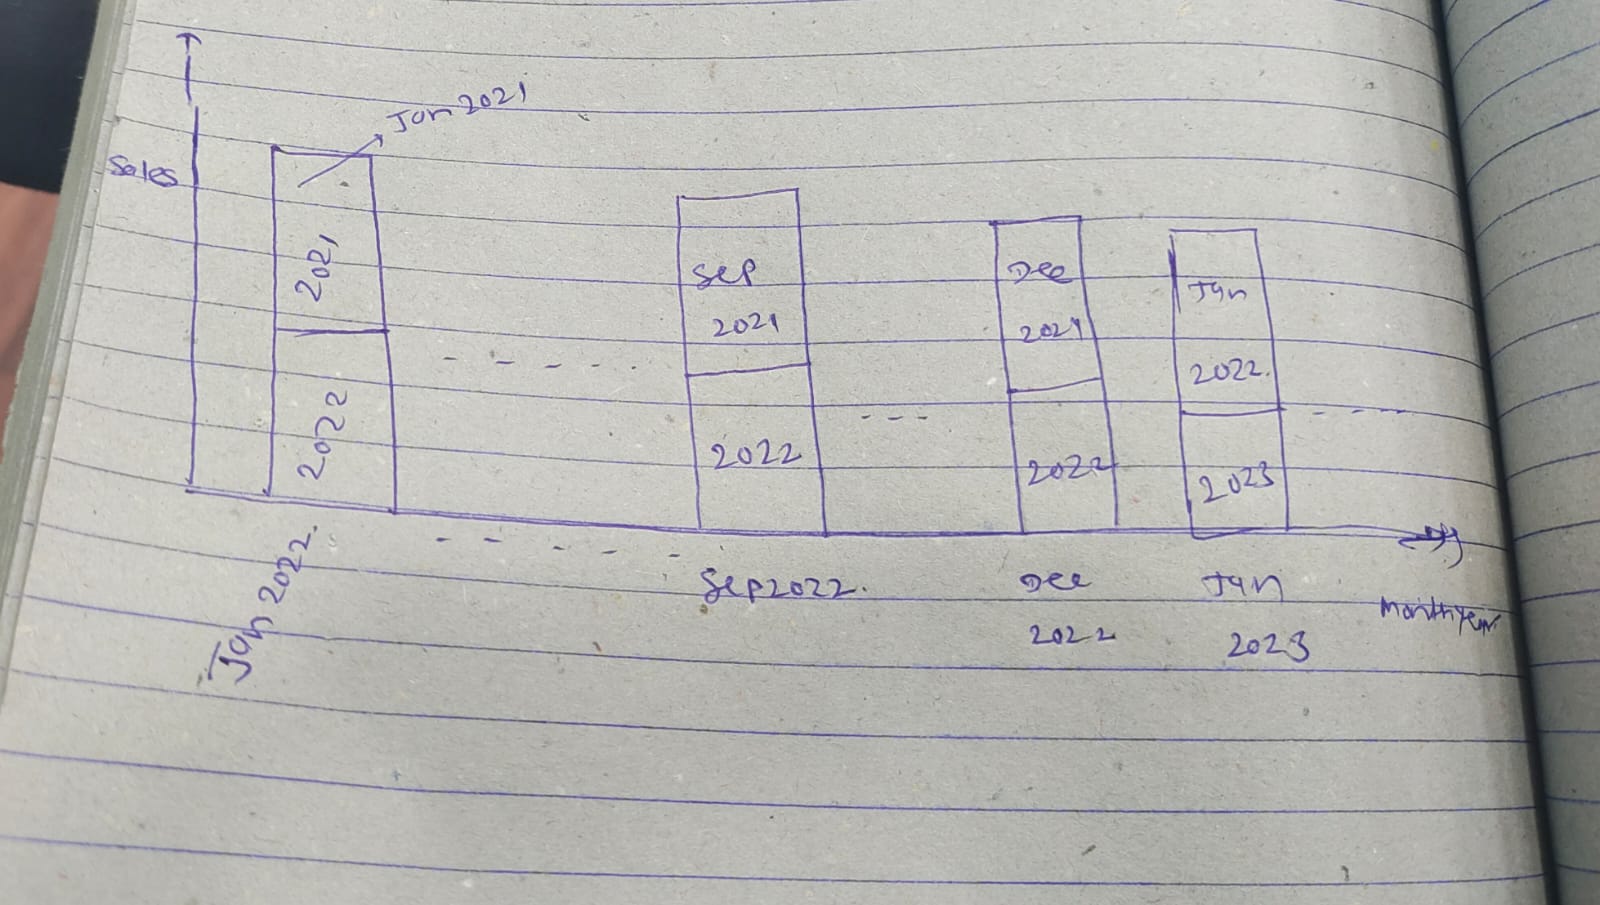 Jan 2021
Sales
2021
2022
Sep
2021
2022
Dec
2021
2022
Jan
2022.
2023
Jan 2022.
Sep2022.
Dec
2022
Jan
2023
monthyear